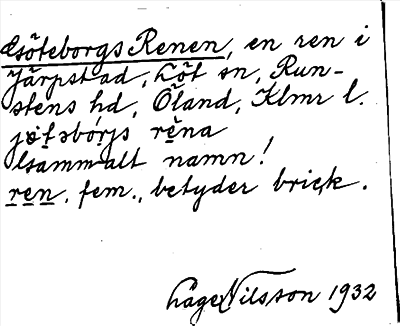 Göteborgs Renen, en ren i
Järpstad, Löt sn, Run-
stens hd, Öland, Klmr l.
jøtəbórjs rēna
Gammalt namn!
ren, fem., betyder brick.
Åge Nilsson 1932